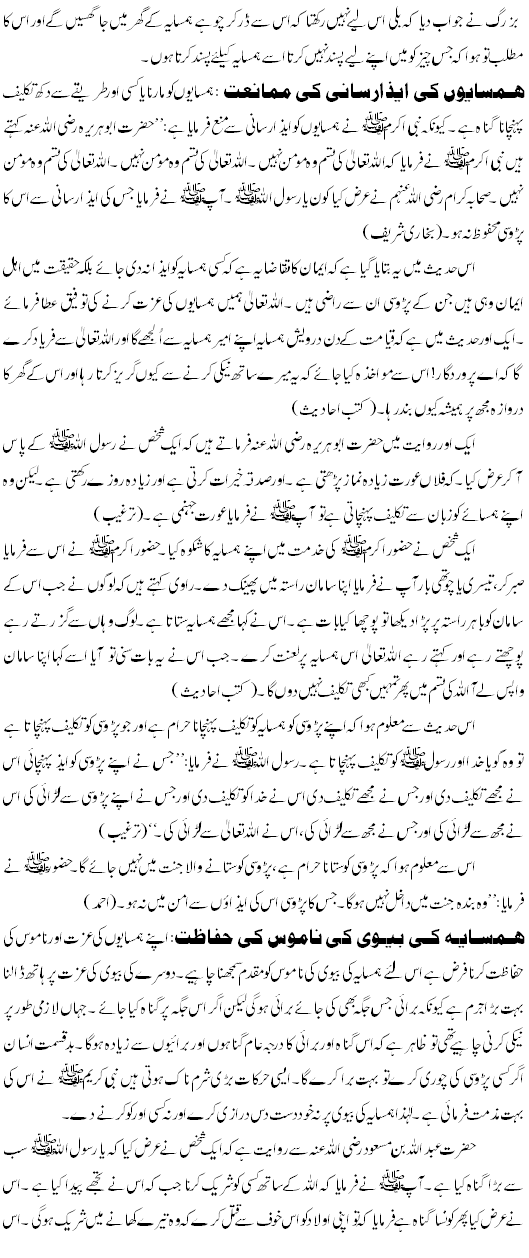 بزرگ نے جواب دیا کہ بلی اس لیے نہیں رکھتا کہ اس سے ڈر کر چوہے ہمسایہ کے گھر میں جا گھسیں گے اور اس کا
مطلب تو ہوا کہ جس چیز کو میں اپنے لیے پسند نہیں کرتا اسے ہمسایہ کیلئے پسند کرتا ہوں۔
ہمسایوں کی ایذا رسانی کی ممانعت: ہمسایوں کو مارنا یا کسی اور طریقے سے دکھ تکلیف
پہنچانا گناہ ہے۔ کیونکہ نبی اکرم ﷺ نے ہمسایوں کو ایذا رسانی سے منع فرمایا ہے: ’’حضرت ابو ہریرہ رضی اللہ عنہ کہتے
ہیں نبی اکرم ﷺ نے فرمایا کہ اللہ تعالیٰ کی قسم وہ مومن نہیں۔ اللہ تعالیٰ کی قسم وہ مومن نہیں۔ اللہ تعالیٰ کی قسم وہ مومن
نہیں۔ صحابہ کرام رضی اللہ عنہم نے عرض کیا کون یا رسول اللہ ﷺ۔ آپ ﷺ نے فرمایا جس کی ایذا رسانی سے اس کا
پڑوسی محفوظ نہ ہو۔ (بخاری شریف)
اس حدیث میں یہ بتایا گیا ہے کہ ایمان کا تقاضا یہ ہے کہ کسی ہمسایہ کو ایذا نہ دی جائے بلکہ حقیقت میں اہل
ایمان وہی ہیں جن کے پڑوسی ان سے راضی ہیں۔ اللہ تعالیٰ ہمیں ہمسایوں کی عزت کرنے کی توفیق عطا فرمائے
۔ ایک اور حدیث میں ہے کہ قیامت کے دن درویش ہمسایہ اپنے امیر ہمسایہ سے اُلجھے گا اور اللہ تعالیٰ سے فریاد کرے
گا کہ اے پروردگار! اس سے مواخذہ کیا جائے کہ یہ میرے ساتھ نیکی کرنے سے کیوں گریز کرتا رہا اور اس کے گھر کا
دروازہ مجھ پر ہمیشہ کیوں بند رہا۔ (کتب احادیث)
ایک اور روایت میں حضرت ابو ہریرہ رضی اللہ عنہ فرماتے ہیں کہ ایک شخص نے رسول اللہ ﷺ کے پاس
آ کر عرض کیا۔ کہ فلاں عورت زیادہ نماز پڑھتی ہے۔ اور صدقہ خیرات کرتی ہے اور زیادہ روزے رکھتی ہے۔ لیکن وہ
اپنے ہمسائے کو زبان سے تکلیف پہنچاتی ہے تو آپ ﷺ نے فرمایا عورت جہنمی ہے۔ (ترغیب)
ایک شخص نے حضور اکرم ﷺ کی خدمت میں اپنے ہمسایہ کا شکوہ کیا۔ حضور اکرم ﷺ نے اس سے فرمایا
صبر کر، تیسری یا چوتھی بار آپ نے فرمایا اپنا سامان راستہ میں پھینک دے۔ راوی کہتے ہیں کہ لوگوں نے جب اس کے
سامان کو باہر راستہ پر پڑا دیکھا تو پوچھا کیا بات ہے۔ اس نے کہا مجھے ہمسایہ ستاتا ہے۔ لوگ وہاں سے گزرتے رہے
پوچھتے رہے اور کہتے رہے اللہ تعالیٰ اس ہمسایہ پر لعنت کرے۔ جب اس نے یہ بات سنی تو آیا اسے کہا اپنا سامان
واپس لے آ اللہ کی قسم میں پھر تمہیں کبھی تکلیف نہیں دوں گا۔ (کتب احادیث)
اس حدیث سے معلوم ہوا کہ اپنے پڑوسی کو ہمسایہ کو تکلیف پہنچانا حرام ہے اور جو پڑوسی کو تکلیف پہنچاتا ہے
تو وہ گویا خدا اور رسول ﷺ کو تکلیف پہنچاتا ہے۔ رسول اللہ ﷺ نے فرمایا: ’’جس نے اپنے پڑوسی کو ایذ پہنچائی اس
نے مجھے تکلیف دی اور جس نے مجھے تکلیف دی اس نے خدا کو تکلیف دی اور جس نے اپنے پڑوسی سے لڑائی کی اس
نے مجھ سے لڑائی کی اور جس نے مجھ سے لڑائی کی، اس نے اللہ تعالیٰ سے لڑائی کی۔‘‘ (ترغیب)
اس سے معلوم ہوا کہ پڑوسی کو ستانا حرام ہے، پڑوسی کو ستانے والا جنت میں نہیں جائے گا۔ حضور ﷺ نے
فرمایا: ’’وہ بندہ جنت میں داخل نہیں ہوگا۔ جس کا پڑوسی اس کی ایذاؤں سے امن میں نہ ہو۔ (احمد)
ہمسایہ کی بیوی کی ناموس کی حفاظت: اپنے ہمسایوں کی عزت اور ناموس کی
حفاظت کرنا فرض ہے اس لئے ہمسایہ کی بیوی کی ناموس کو مقدم سمجھنا چاہیے۔ دوسرے کی بیوی کی عزت پر ہاتھ ڈالنا
بہت بڑا جرم ہے کیونکہ برائی جس جگہ بھی کی جائے برائی ہوگی لیکن اگر اس جگہ پر گناہ کیا جائے۔ جہاں لازمی طور پر
نیکی کرنی چاہیے تھی تو ظاہر ہے کہ اس گناہ اور برائی کا درجہ عام گناہوں اور برائیوں سے زیادہ ہوگا۔ بدقسمت انسان
اگر کسی پڑوسی کی چوری کرے تو بہت برا کرے گا۔ ایسی حرکات بڑی شرم ناک ہوتی ہیں نبی کریم ﷺ نے اس کی
بہت مذمت فرمائی ہے۔ لہٰذا ہمسایہ کی بیوی پر نہ خود دست درازی کرے اور نہ کسی اور کو کرنے دے۔
حضرت عبد اللہ بن مسعود رضی اللہ عنہ سے روایت ہے کہ ایک شخص نے عرض کیا کہ یا رسول اللہ ﷺ سب
سے بڑا گناہ کیا ہے۔ آپ ﷺ نے فرمایا کہ اللہ کے ساتھ کسی کو شریک کرنا جب کہ اس نے تجھے پیدا کیا ہے۔ اس
نے عرض کیا پھر کونسا گناہ ہے فرمایا کہ تو اپنی اولاد کو اس خوف سے قتل کرے کہ وہ تیرے کھانے میں شریک ہوگی۔ اس